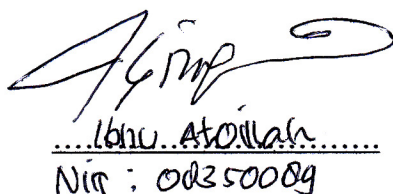 Ibnu Atoillah
Nim : 08350089